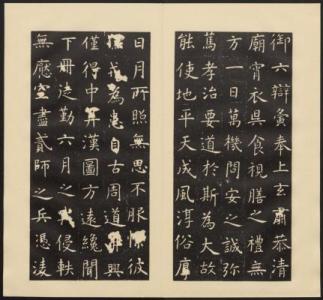 御六辯奉上玄肅恭清
廟宵衣昃食視膳之禮無
方一日萬機問安之誠彌
篤孝治要道於斯為大故
能使地平天成風淳俗厚
日月所照無思不服彼
戎為患自古周道興
僅得中算漢圖方遠纔聞
下冊徒勤六月之侵軼
無厭空盡貳師之兵憑陵